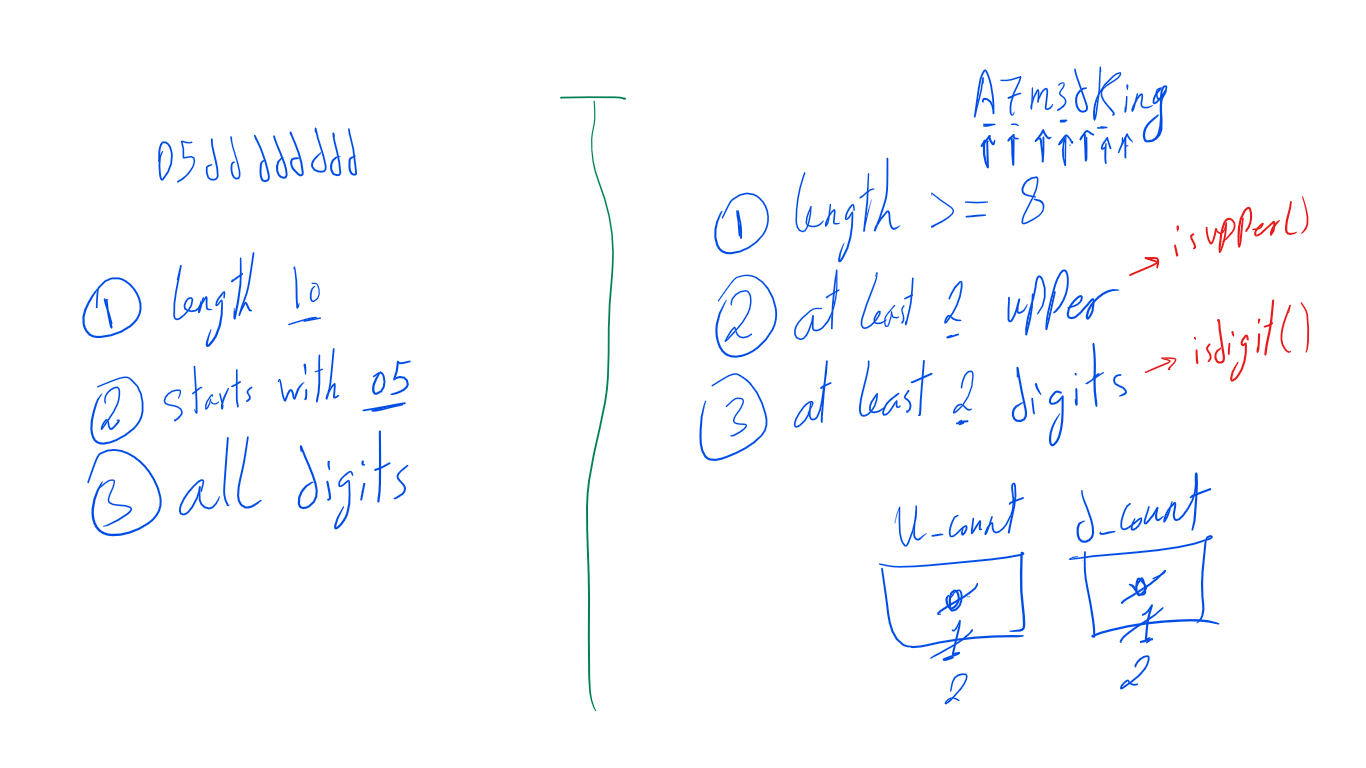 05dd dddddd
① length 10
② starts with 05
③ all digits
A7m3dKing
① length >= 8
② at least 2 upper → isupper()
③ at least 2 digits → isdigit()
u_count d_count
0 0
1 1
2 2